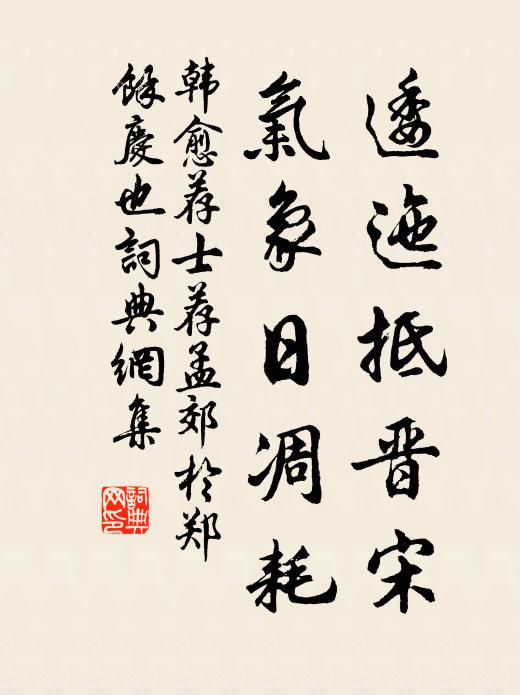 逶迤抵晋宋
氣象日凋耗
韩愈荐士荐孟郊於郑
餘慶也詞典網集
詞典
网印